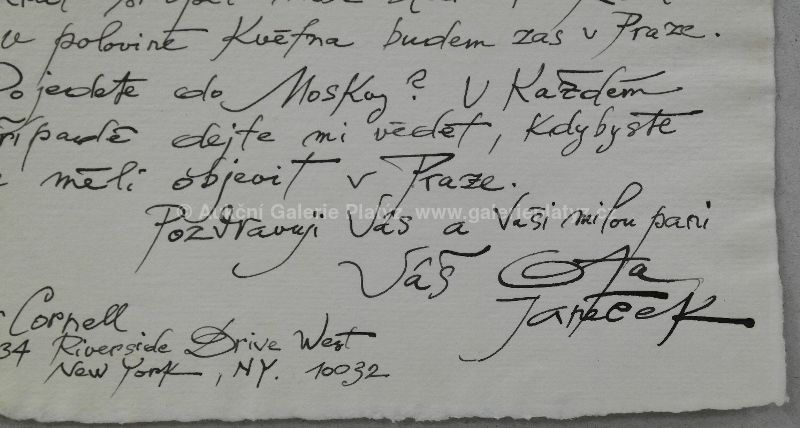 v polovině Května budem zas v Praze.
Pojedete do Moskvy? V Každém
případě dejte mi vědět, Kdybyste
měli objevit v Praze.
© Aukční Galerie Platýz, www.galerieplatyz.cz
Pozdravuji Vás a Vaši milou pani
Váš Ota
Janeček
Cornell
34 Riverside Drive West
New York, NY. 10032